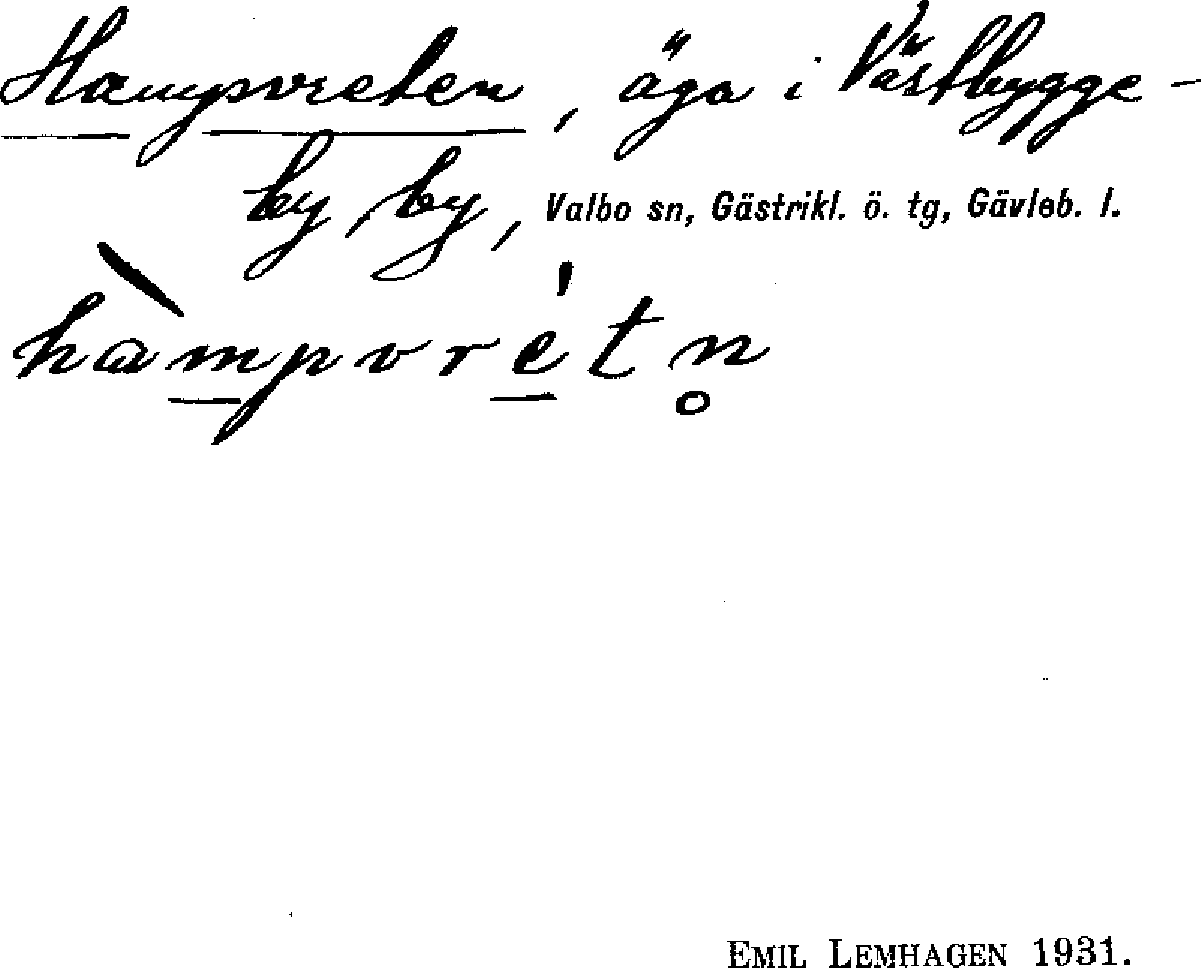 Hampvreten, äga i Västbygge-
by by, Valbo sn, Gästrikl. ö. tg, Gävleb. l.
hàmpvrétn̥
EMIL LEMHAGEN 1931.